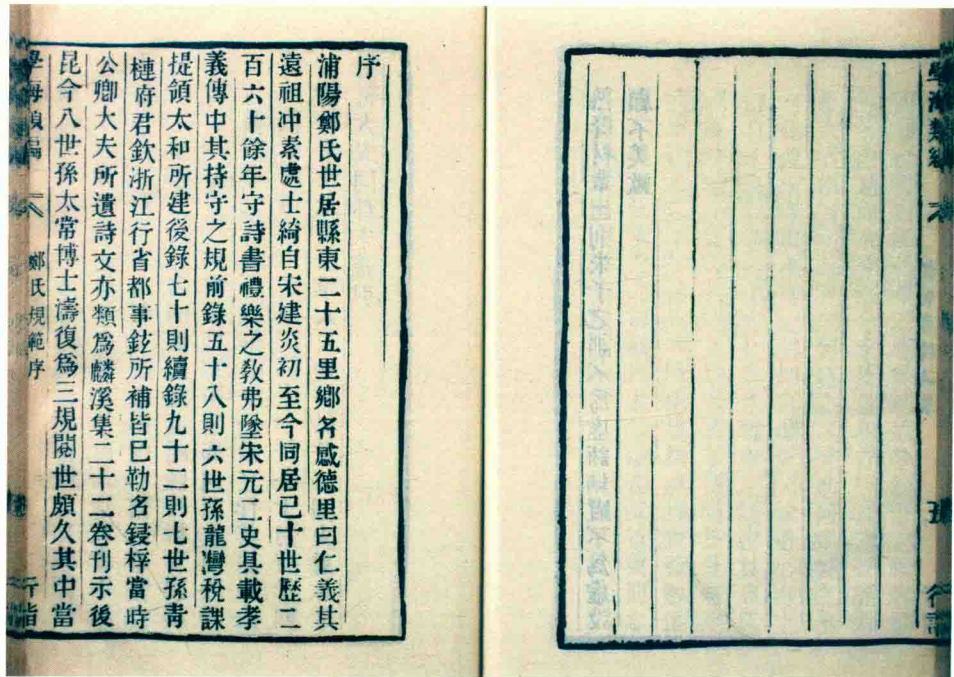 序
浦陽鄭氏世居縣東二十五里鄉名感德里曰仁義其
遠祖冲素處士綺自宋建炎初至今同居已十世歷二
百六十餘年守詩書禮樂之教弗墜宋元二史具載孝
義傳中其持守之規前錄五十八則六世孫龍灣稅課
提領太和所建後錄七十則續錄九十二則七世孫青
槤府君欽浙江行省都事鉉所補皆已勒名鋟梓當時
公卿大夫所遺詩文亦類爲麟溪集二十二卷刊示後
昆今八世孫太常博士濤復爲三規閱世頗久其中當
學海類編
鄭氏規範序
行詣
學海類編
行詣